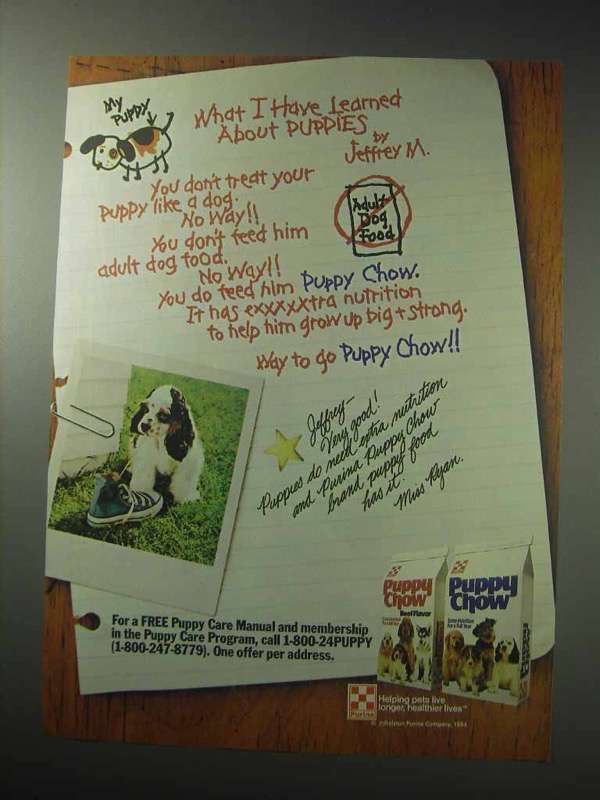 My
PUPPY
What I Have Learned
About PUPPIES
by
Jeffrey M.
You don't treat your
puppy like a dog.
No Way!!
You don't feed him
adult dog food.
No Way!!
Adult
Dog
Food
You do feed him Puppy Chow.
It has exxxxxtra nutrition
to help him grow up big + strong.
Way to go Puppy Chow!!
Jeffrey—
Very good!
Puppies do need extra nutrition
and Purina Puppy Chow
brand puppy food
has it.
Miss Ryan.
For a FREE Puppy Care Manual and membership
in the Puppy Care Program, call 1-800-24PUPPY
(1-800-247-8779). One offer per address.
Puppy
Chow
Beef Flavor
Puppy
Chow
Extra Nutrition
for a Full Year
Purina
Helping pets live
longer, healthier lives™
© Ralston Purina Company, 1984